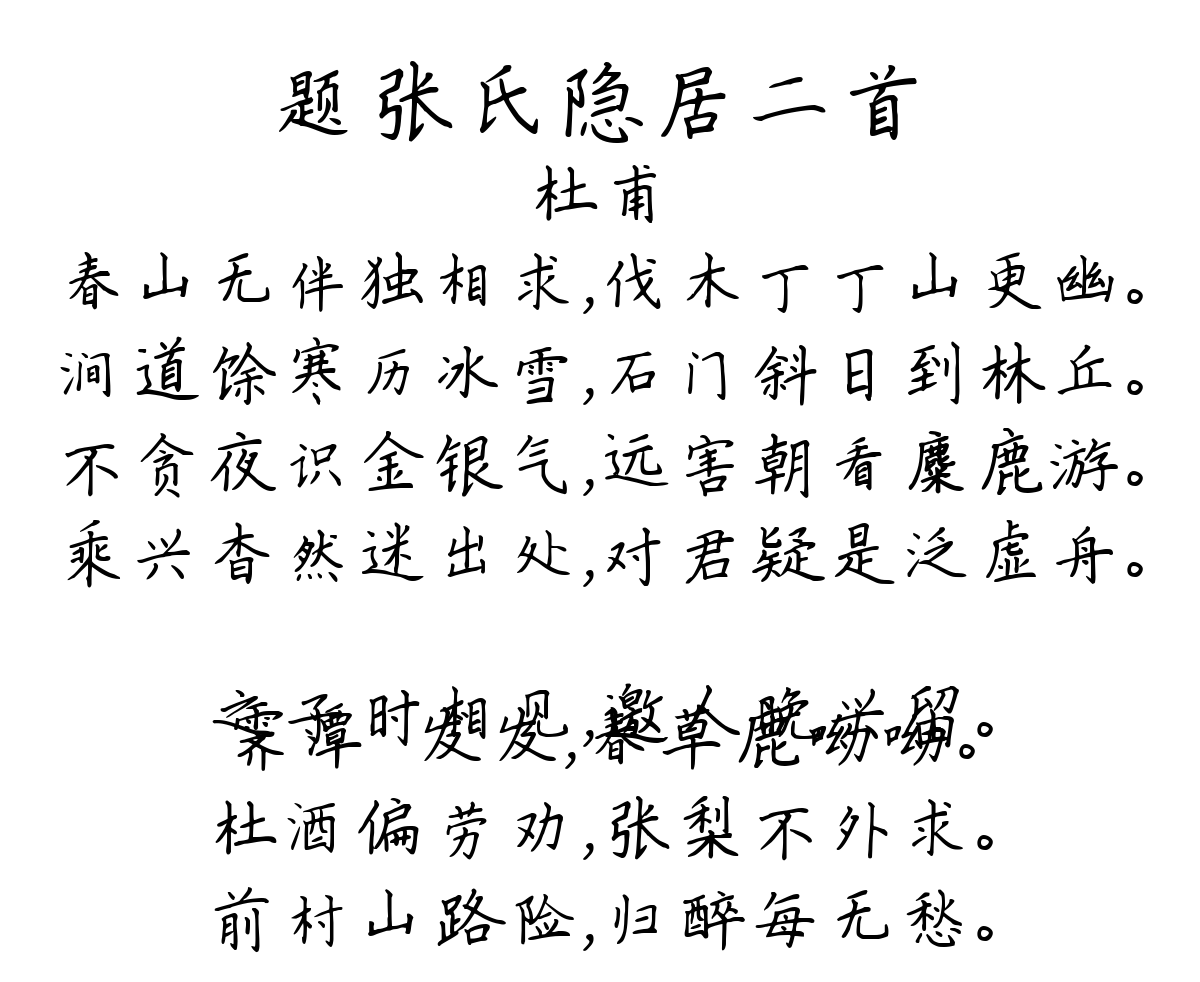 题张氏隐居二首
杜甫
春山无伴独相求,伐木丁丁山更幽。
涧道馀寒历冰雪,石门斜日到林丘。
不贪夜识金银气,远害朝看麋鹿游。
乘兴杳然迷出处,对君疑是泛虚舟。
之子时相见,邀人晚兴留。
霁潭 发发,春草鹿呦呦。
杜酒偏劳劝,张梨不外求。
前村山路险,归醉每无愁。